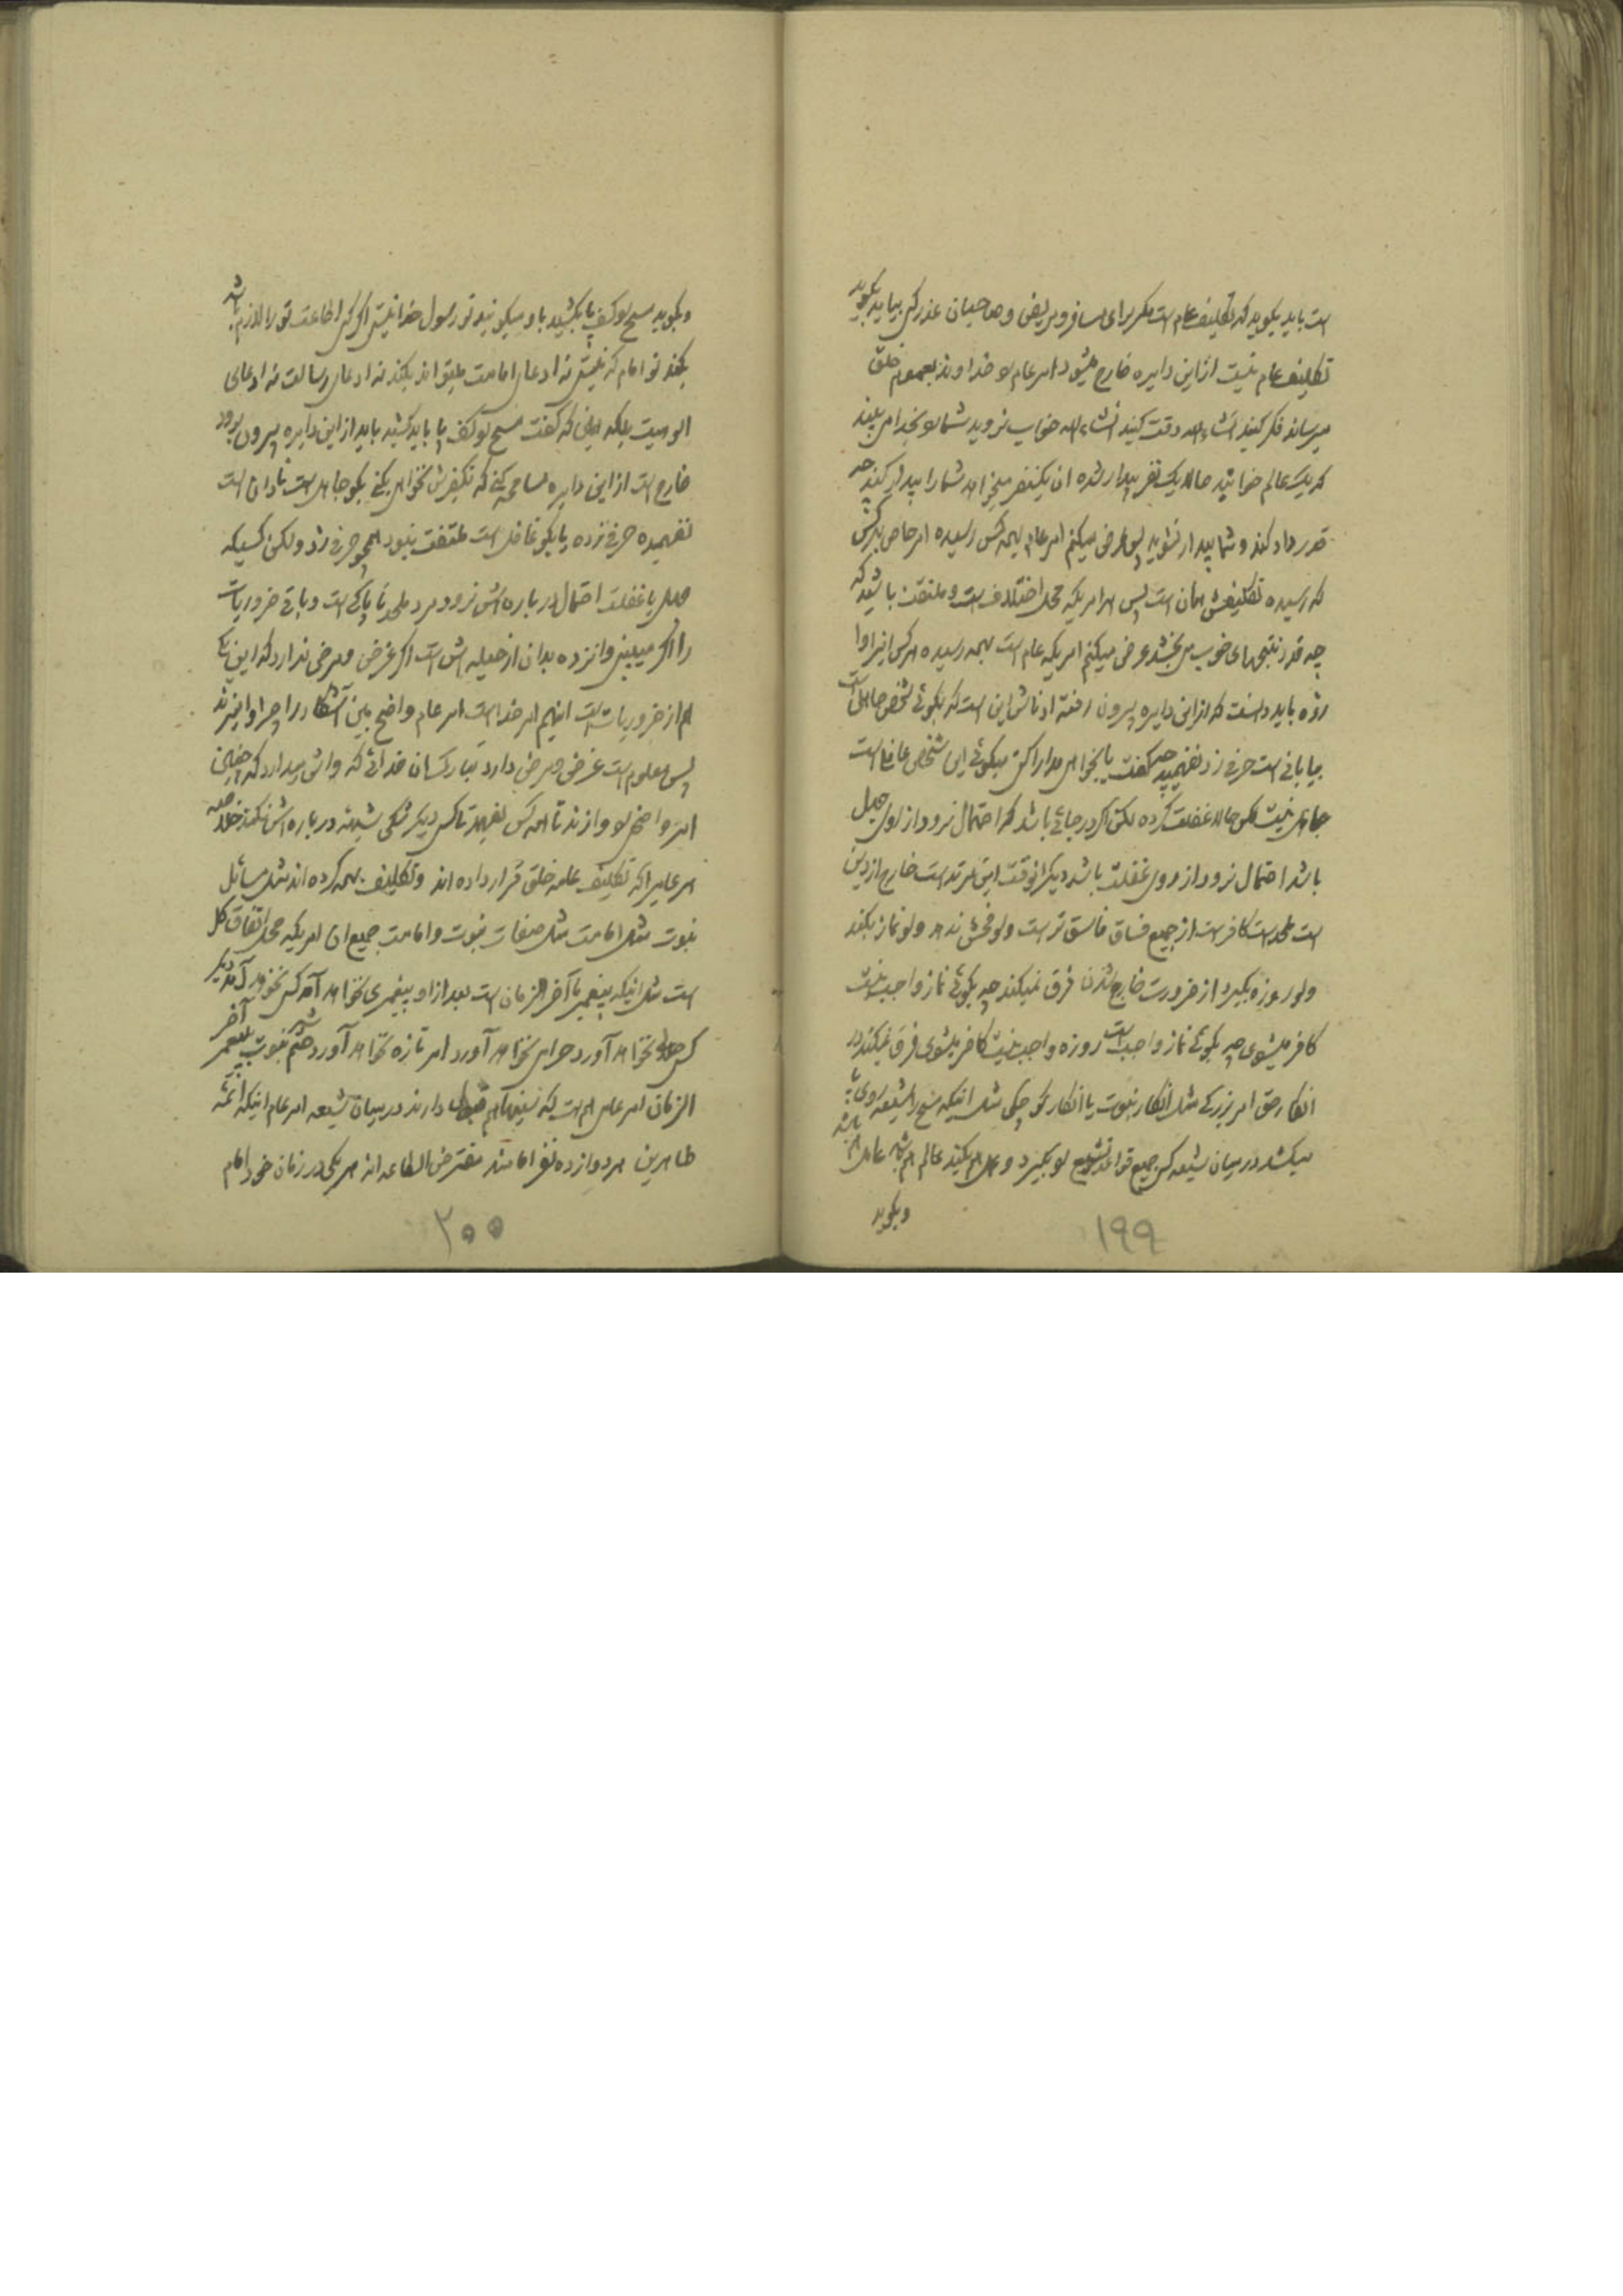 است باید بگوید که تکلیف عام است مگر برای مسافر و مریض و صاحبان عذر کسی بیاید بگوید
تکلیف عام نیست از این دایره خارج میشود امر عام را خداوند بعموم خلق
میرساند فکر کنید انشاءالله دقت کنید انشاءالله خواب نروید شما را بخدا می بینید
که یک عالم خوابید حالا یک نفر بیدار شده ان یکنفر میخواهد شما را بیدار کند چه
قدر داد کند و شما بیدار نشوید پس عرض میکنم امر عام بهمه کس رسیده امر خاص بهر کس
که رسیده تکلیفش همان است پس هر امریکه محل اختلاف است و ملتفت باشید که
چه قدر نتیجهای خوب می بخشد عرض میکنم امریکه عام است بهمه رسیده هر کس انرا وا
زده باید دانست که از این دایره بیرون رفته ادناش این است که بگوئی شخص جاهلی است
بیابانی است حرفی زد نفهمید چه گفت یا بخواهی مدارا کنی میگوئی این شخص غافل است
جاهل نیست لکن حالا غفلت کرده لکن اگر در جائی باشد که احتمال نرود از اول جهل
باشد احتمال نرود از روی غفلت باشد دیگر انوقت این مرتد است خارج از دین
است ملحد است کافر است از جمیع فساق فاسق تر است ولو فحش ندهد ولو نماز بکند
ولو روزه بگیرد از ضرورت خارج شدن فرق نمیکند چه بگوئی نماز واجب نیست
کافر میشوی چه بگوئی نماز واجب است روزه واجب نیست کافر میشوی فرق نمیکند در
انکار حق امر بزرگی مثل انکار نبوت یا انکار کوچکی مثل اینکه مسح را شیعه روی پا
میکشد در میان شیعه کسی جمیع قواعد تشیع را بگیرد و عمل هم بکند عالم هم باشد عامل هم باشد
وبگوید
۱۹۹
وبگوید مسح را کف پا بکشید باو میگویند تو رسول خدا نیستی اگر کسی اطاعت تو را لازم باشد
بکند تو امام که نیستی نه ادعای امامت میتواند بکند نه ادعای رسالت نه ادعای
الوهیت بلکه اینی که گفت مسح را کف پا باید کشید باید از این دایره بیرون برود
خارج است از این دایره مسامحه کنی که تکفیرش نخواهی بکنی بگو جاهل است نادان است
نفهمیده حرفی زده یا بگو غافل است ملتفت نبود همچو حرفی زد ولکن کسیکه
جهل یا غفلت احتمال در باره اش نرود مرد ملحد ناپاکی است و باقی ضروریات
را اگر میبینی وانزده بدان از حیله اش است اگر غرض و مرضی ندارد که این یکی
هم از ضروریات است اینهم امر خداست امر عام واضح بین آشکار را چرا وامیزند
پس معلوم است غرض و مرضی دارد بیارکسان خدائی که وامیدارد که همچنین
امر واضحی را وازند تا همه کس بفهمد تا کس دیگر شکی شبهه درباره اش نکند خلاصه
امر عامیرا که تکلیف عامه خلق قرار داده اند و تکلیف بهمه کرده اند مثل مسائل
نبوت مثل امامت مثل صفات نبوت و امامت جمیع ان امریکه محل اتفاق کل
است مثل اینکه پیغمبر ما آخر الزمان است بعد از او پیغمبری نخواهد آمد کس نخواهد آمد دیگر
کس حلالی نخواهد آورد حرامی نخواهد آورد امر تازه نخواهد آورد ختم نبوت شده پیغمبر آخر
الزمان امر عامی است که سنیها هم قبول دارند در میان شیعه امر عام اینکه ائمه
طاهرین هر دوازده نفر امامند مفترض الطاعه اند هر یکی در زمان خود امام
۲۰۰